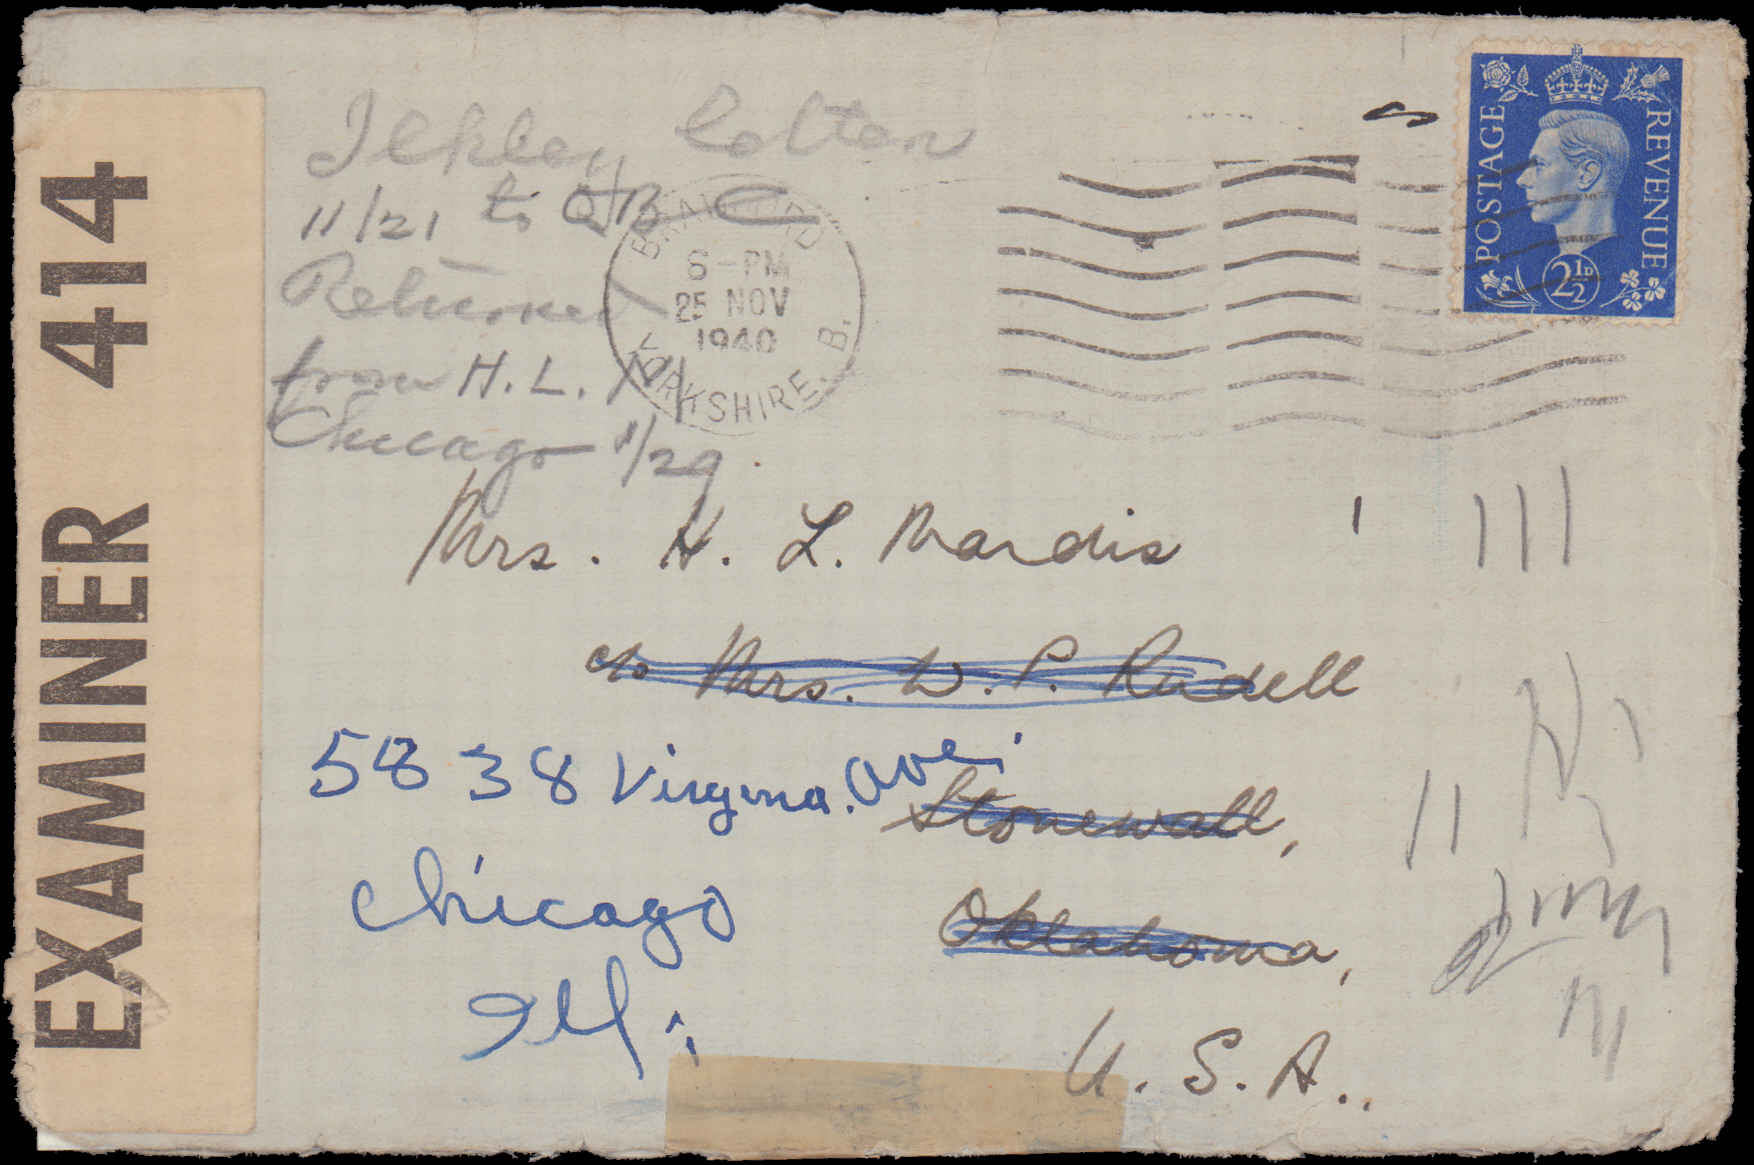 EXAMINER 414
Ilkley letter
11/21 to QB C
Returned
from H. L. M
Chicago 11/29.
BRADFORD
6-PM
25 NOV
1940
YORKSHIRE. B.
POSTAGE
REVENUE
2½D
Mrs. H. L. Mardis
c/o Mrs. W. P. Rudell
5838 Virginia. Ave.
Stonewall,
Chicago
Oklahoma,
Ill.
U. S. A..